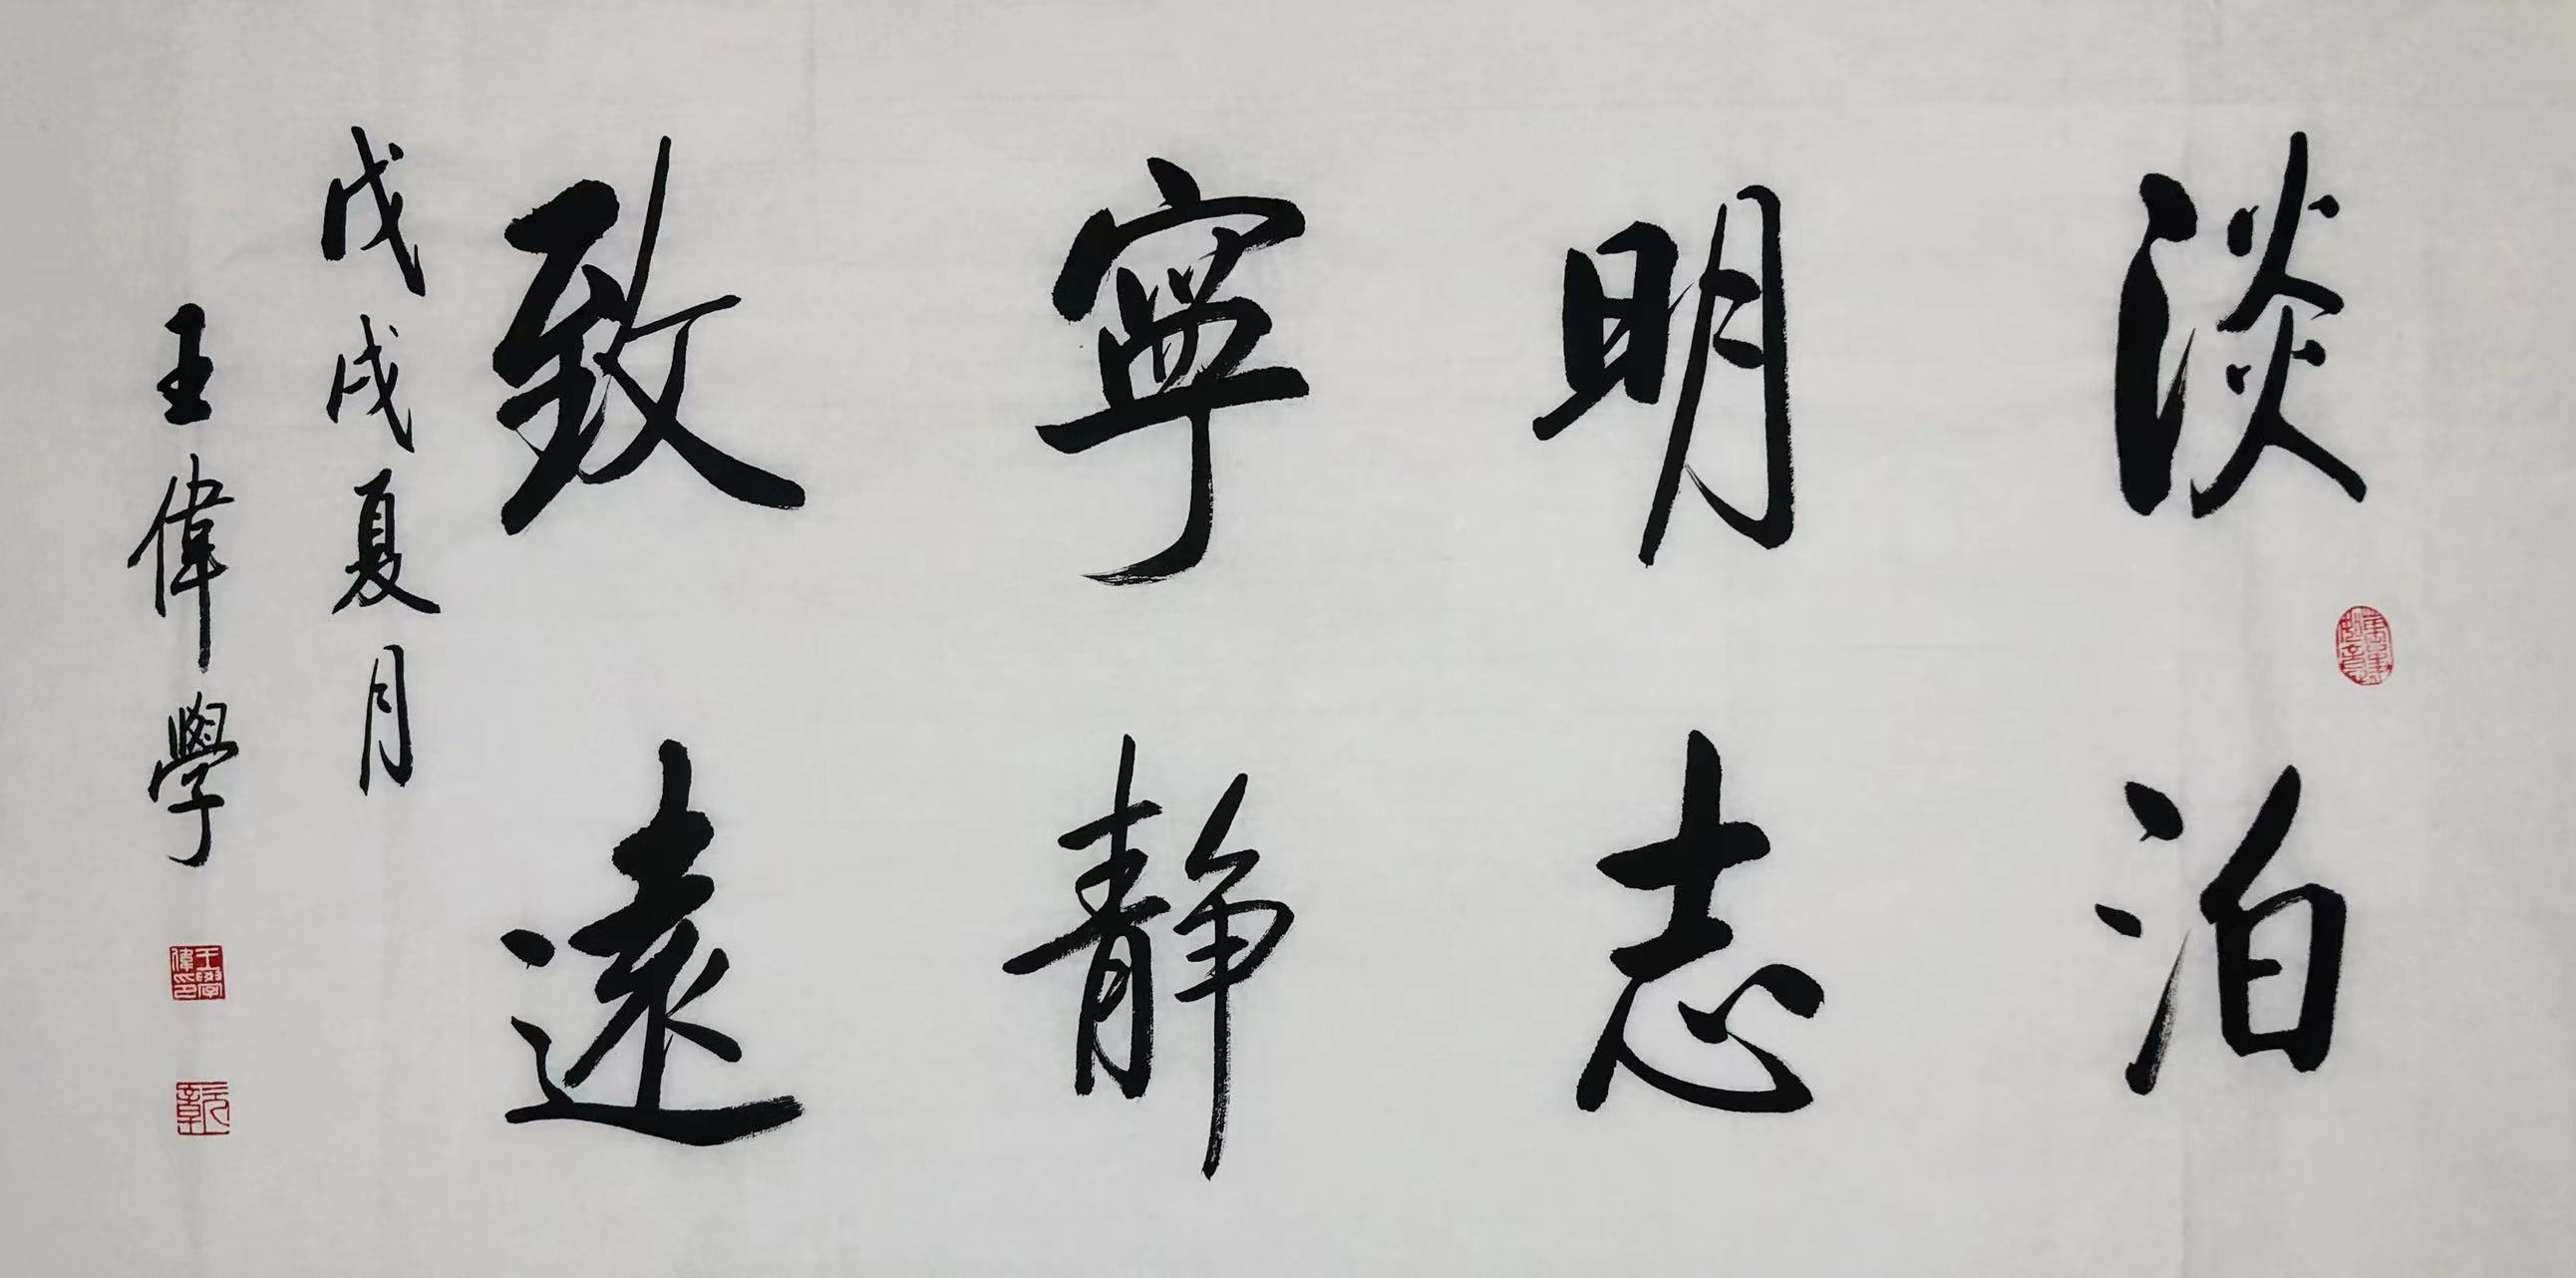 淡泊
明志
寧静
致遠
戊戌夏月
王偉學
王學偉印